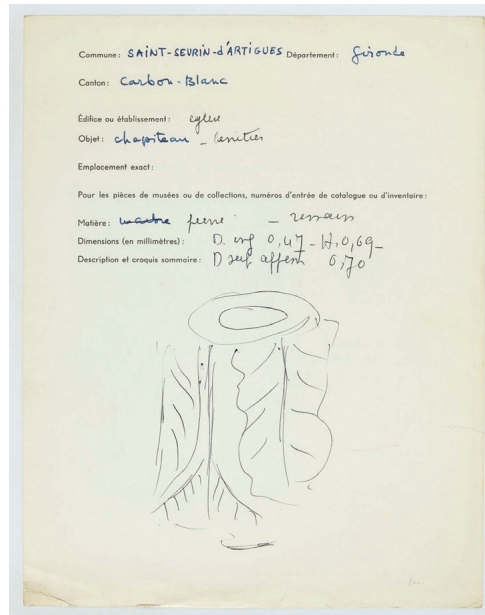 Commune : SAINT-SEURIN-d'ARTIGUES Département : Gironde
Canton : Carbon-Blanc
Édifice ou établissement : eglise
Objet : chapiteau _ benitier
Emplacement exact :
Pour les pièces de musées ou de collections, numéros d'entrée de catalogue ou d'inventaire :
Matière : marbre pierre - romain
Dimensions (en millimètres) : D. inf 0,47 - H. 0,69 -
Description et croquis sommaire : D sup 0,70